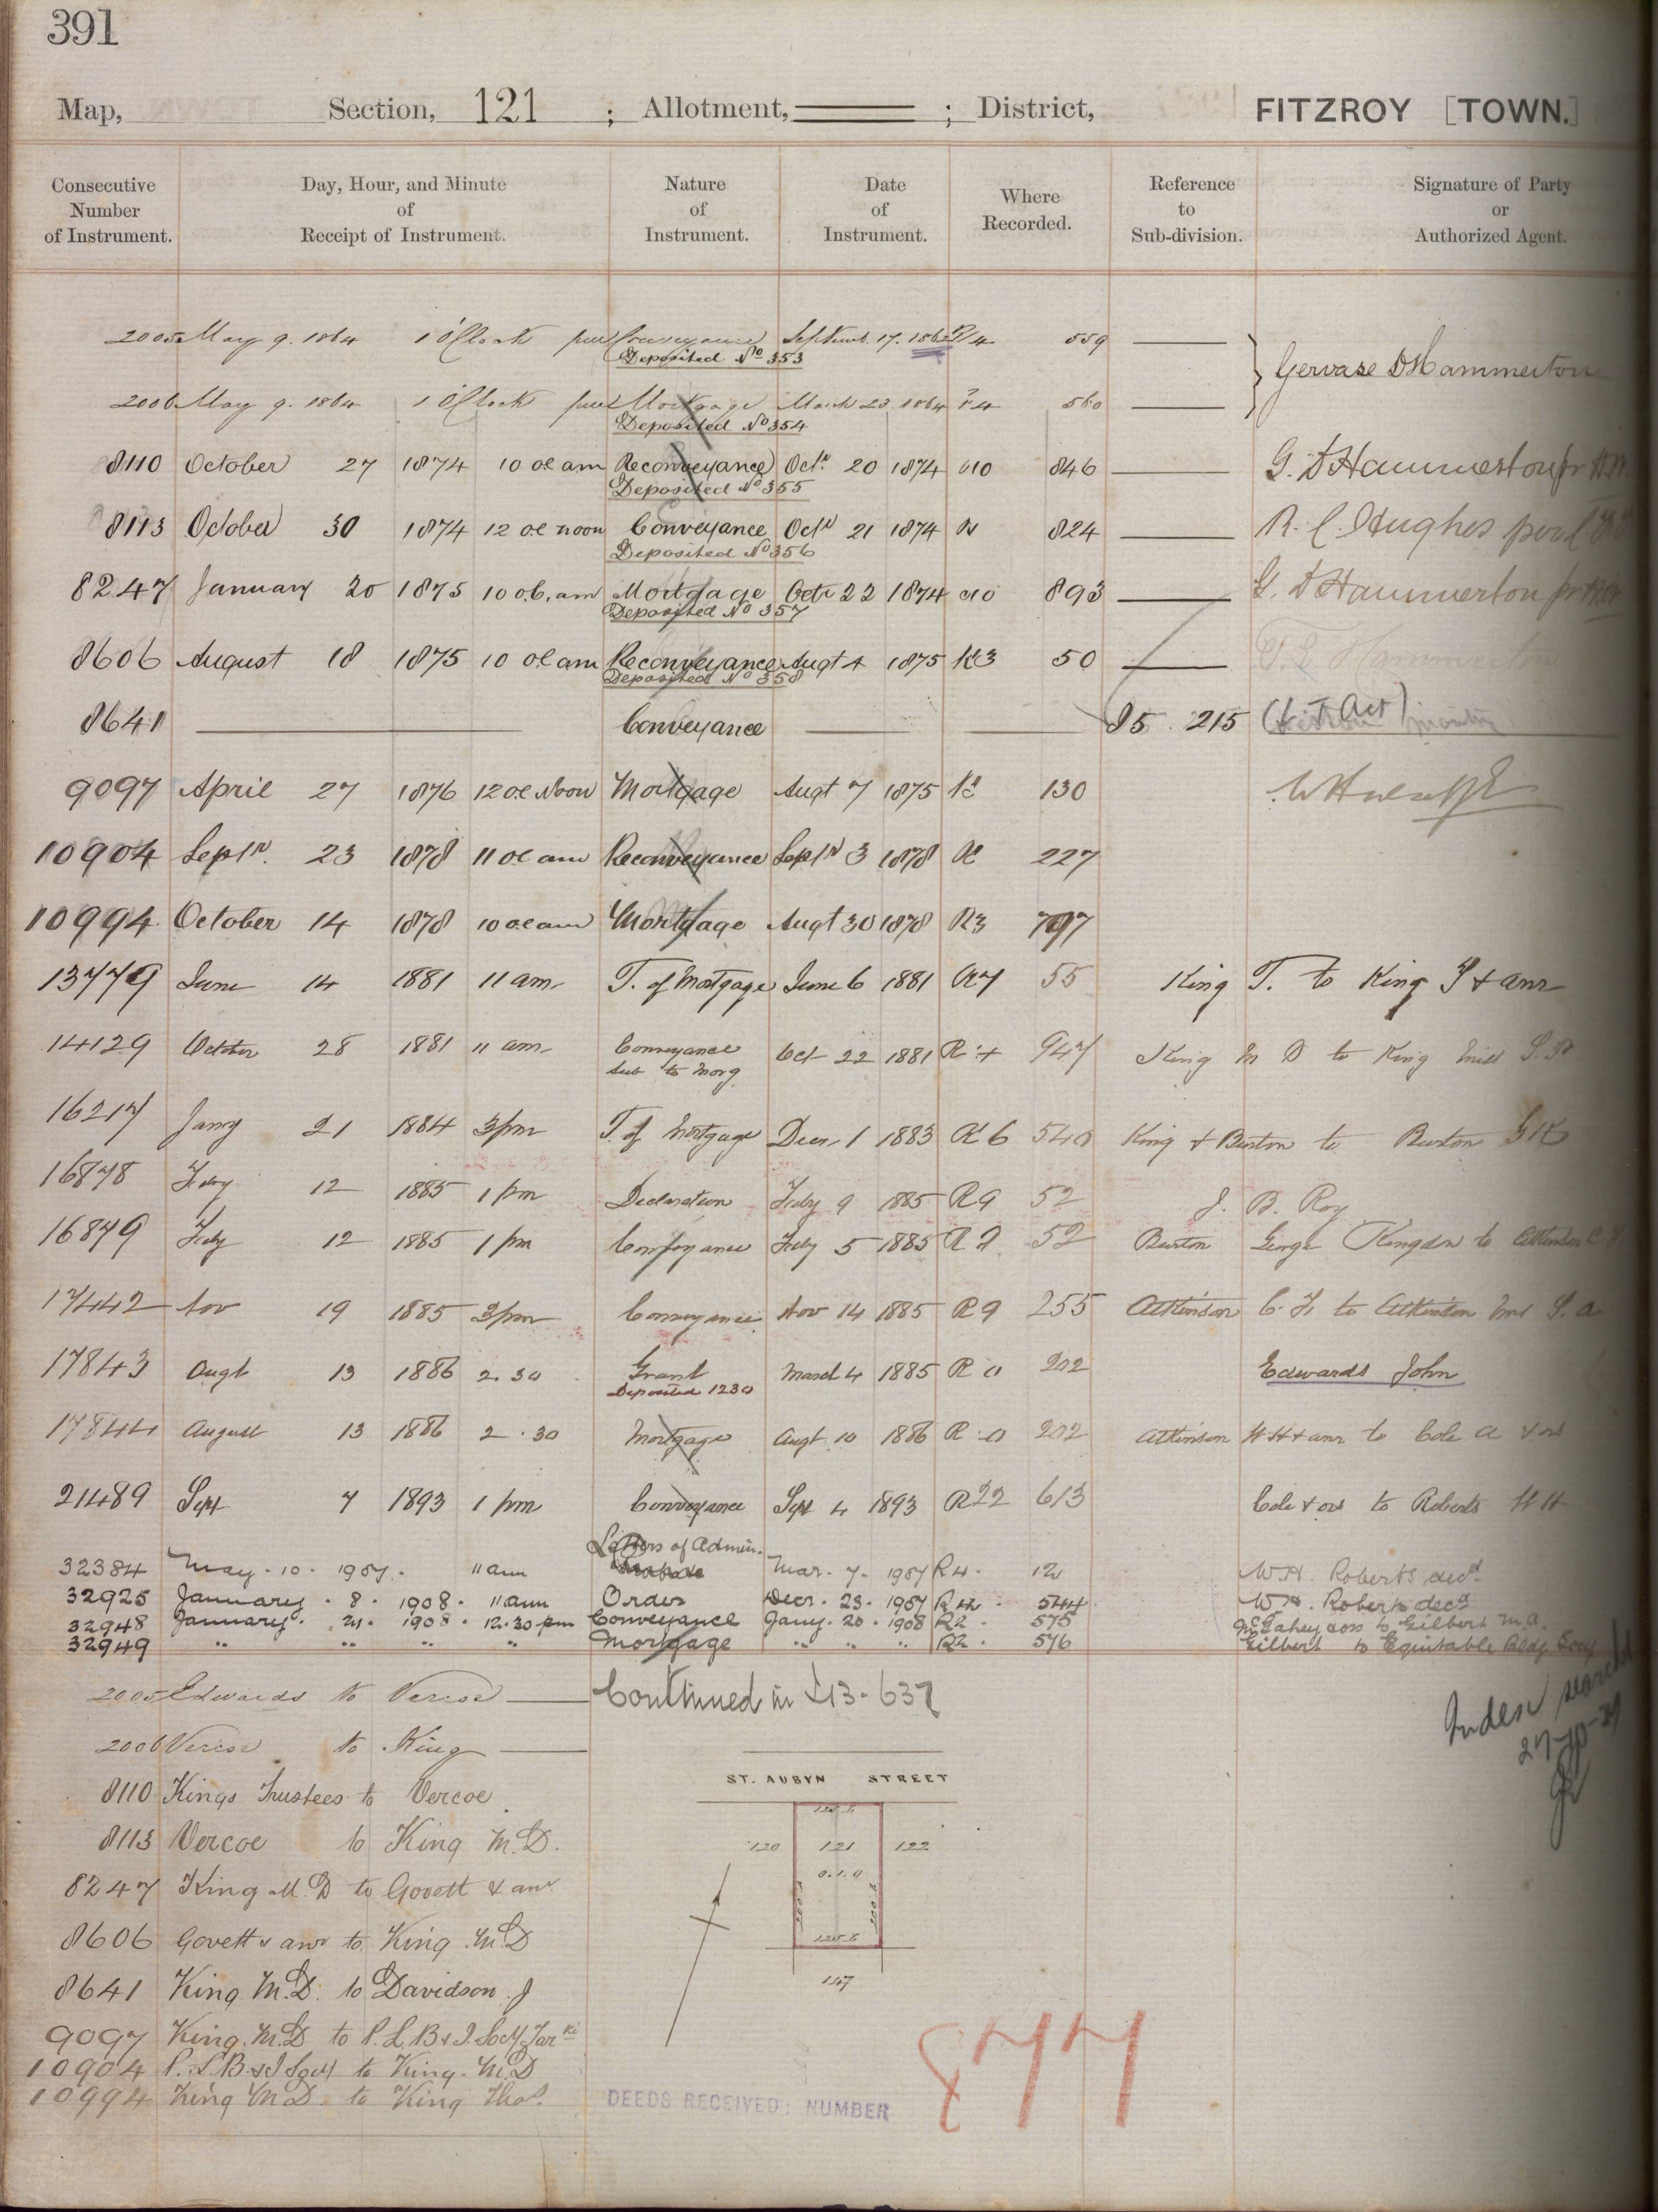 391
Map, Section, 121 ; Allotment, ; District, FITZROY [TOWN.]
Consecutive Number of Instrument. Day, Hour, and Minute of Receipt of Instrument. Nature of Instrument. Date of Instrument. Where Recorded. Reference to Sub-division. Signature of Party or Authorized Agent.
2005 May 9. 1864 1 O'Clock Conveyance Septemb. 17. 559
Deposited No 353
Gervase D Hammerton
2006 May 9. 1864 1 O'Clock Mortgage March 23. 1864 560
Deposited No 354
8110 October 27 1874 10 oc am Reconveyance Octr. 20 1874 846 G. D Hammerton
Deposited No 355
8113 October 30 1874 12 oc noon Conveyance Octr 21 1874 824 R. C. Hughes
Deposited No 356
8247 January 20 1875 10 o.c. am Mortgage Octr 22 1874 893 G. D Hammerton
Deposited No 357
8606 August 18 1875 10 oc am Reconveyance Augt 4 1875 R3 50
Deposited No 358
8641 Conveyance 215 (L T Act)
9097 April 27 1876 12 oc Noon Mortgage Augt 7 1875 130
10904 Septr. 23 1878 11 oc am Reconveyance Septr 3 1878 227
10994 October 14 1878 10 oc am Mortgage Augt 30 1878 R3 797
13779 June 14 1881 11 am T. of Mortgage June 6 1881 R7 55 King T. to King T & anr
14129 October 28 1881 11 am Conveyance Oct 22 1881 947 King M D to King Miss
sub to Morg
16217 Jany 21 1884 3 pm T. of Mortgage Decr 1 1883 R6 540 King & Burton to Burton G K
16878 Feby 12 1885 1 pm Declaration Feby 9 1885 R9 52 J. B. Roy
16879 Feby 12 1885 1 pm Conveyance Feby 5 1885 R9 52 Burton George Kingdon to Atkinson
17442 Nov 19 1885 3 pm Conveyance Nov 14 1885 R9 255 Atkinson C. F. to Atkinson Mrs S. A
17843 Augt 13 1886 2.30 Grant March 4 1885 202 Edwards John
Deposited 1230
17844 August 13 1886 2.30 Mortgage Augt 10 1886 202 Atkinson H H & anr to Cole A & ors
21489 Sept 7 1893 1 pm Conveyance Sept 4 1893 R22 613 Cole & ors to Roberts H H
Letters of Admin.
32384 May. 10. 1907. 11 am Probate Mar. 7. 1907 12 W. H. Roberts decd.
32925 January. 8. 1908. 11 am Order Decr. 23. 1907 544 W. H. Roberts decd
32948 January. 21. 1908. 12.30 pm Conveyance Jany. 20. 1908 R2. 575 McGahey & ors to Gilbert M.A.
32949 " " " " Mortgage " " " R2. 576 Gilbert to Equitable Bldg Socy
2005 Edwards to Vercoe
Continued in 13. 637
2006 Vercoe to King
Index searched
8110 Kings Trustees to Vercoe
8113 Vercoe to King M.D.
8247 King M.D to Govett & anr
8606 Govett & anr to King M.D
8641 King M.D. to Davidson J
9097 King M.D to P.L.B & I. Socy Tarki
10904 P.L.B & I Socy to King. M.D
10994 King M D. to King Thos.
ST. AUBYN STREET
125.5
120 121 122
0.1.0
200.5 200.5
125.5
147
DEEDS RECEIVED: NUMBER
877